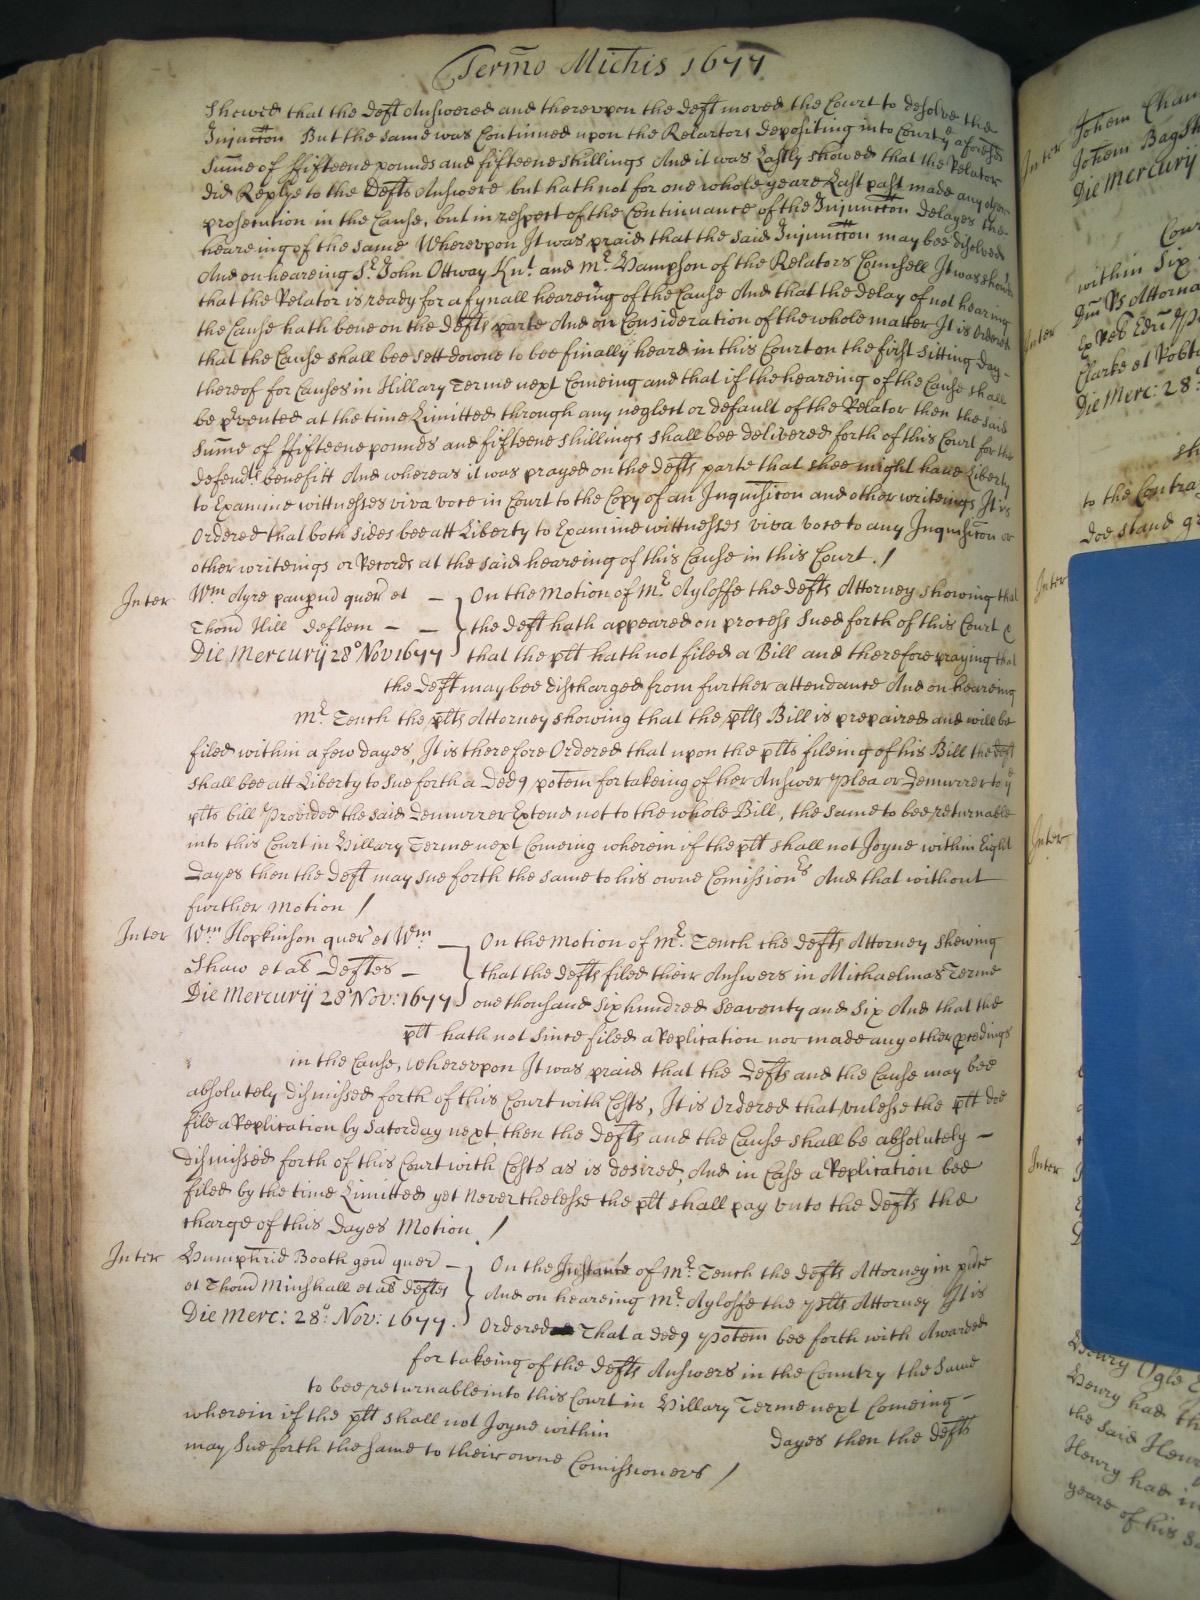 Termo Michis 1677
Shewed that the deft Answered and therevpon the deft moved the Court to desolve the
Injuncton But the same was Continued upon the Relators depositing into Court ye aforesd
Sume of ffifteene pounds and fifteene shillings And it was Lastly showed that the Relator
did Replye to the Defts Answere but hath not for one whole yeare Last past made any
prosecution in the Cause, but in respect of the Continuance of the Injuncton delayes the
heareing of the same Wherevpon It was praid that the said Injuncton may bee disolved
And on heareing Sr John Ottway Knt. and Mr. Hampson of the Relators Councell It was showed
that the Relator is ready for a fynall heareing of the Cause And that the delay of not hearing
the Cause hath bene on the defts parte And on Consideration of the whole matter It is Ordered
that the Cause shall bee sett downe to bee finally heard in this Court on the first sitting day
thereof for Causes in Hillary Terme next Comeing and that if the heareing of the Cause shall
be prvented at the time Limitted through any neglect or default of the Relator then the said
Sume of ffifteene pounds and fifteene shillings shall bee delivered forth of this Court for the
defendts benefitt And whereas it was prayed on the defts parte that shee might have Liberty
to Examine wittnesses viva voce in Court to the Copy of an Inquisicon and other writeings It is
Ordered that both sides bee att Liberty to Examine wittnesses viva voce to any Inquisicon or
other writeings or Records at the said heareing of this Cause in this Court . /
Inter Wm Ayre paupnd quer et — On the Motion of Mr Ayloffe the defts Attorney showing that
Thom Hill deftem — — the deft hath appeared on process Sued forth of this Court &
Die Mercurij 28o Nov 1677 that the plt hath not filed a Bill and therefore praying that
the deft may bee discharged from further attendance And on heareing
Mr Tench the plts Attorney showing that the plts Bill is prepaired and will be
filed within a few dayes, It is therefore Ordered that upon the plts fileing of his Bill the deft
shall bee att Liberty to Sue forth a Ded9 potem for takeing of her Answer plea or Demurrer to ye
plts bill Provided the said Demurrer Extend not to the whole Bill, the same to bee returnable
into this Court in Hillary Terme next Comeing wherein if the plt shall not Joyne within Eight
Dayes then the deft may sue forth the same to his owne Comissionrs And that without
further Motion /
Inter Wm Hopkinson quer et Wm — On the Motion of Mr. Tench the defts Attorney shewing
Shaw et als Deftes — that the defts filed their Answers in Michaelmas Terme
Die Mercurij 28o Nov: 1677 one thousand six hundred Seaventy and Six And that the
plt hath not since filed a Replication nor made any other pcedings
in the Cause, wherevpon It was praid that the Defts and the Cause may bee
absolutely dismissed forth of this Court with Costs, It is Ordered that vnlesse the plt doe
file a Replication by Saturday next, then the defts and the Cause shall be absolutely —
dismissed forth of this Court with Costs as is desired, And in Case a Replication bee
filed by the time Limitted yet Neverthelesse the plt shall pay vnto the defts the
charge of this dayes Motion . /
Inter Humphrid Booth gen quer — On the Instance of Mr. Tench the defts Attorney in pdte
et Thom Minshall et als deftes And on heareing Mr. Ayloffe the plts Attorney It is
Die Merc: 28o: Nov: 1677. Ordered That a ded9 potem bee forth with Awarded
for takeing of the defts Answers in the Country the Same
to bee returnable into this Court in Hillary Terme next Comeing —
wherein if the plt shall not Joyne within dayes then the defts
may Sue forth the same to their owne Comissioners /
Johem Chau
Inter Johem Bagsh
Die Mercurij
Cour
within Six
Attorna
Inter
Clarke et Robt
Die Merc: 28o
sh
to the Contra
doe stand
Inter
Inter
Inter
Henry Ogle
Henry had th
the said Henr
Henry had in
yeare of his